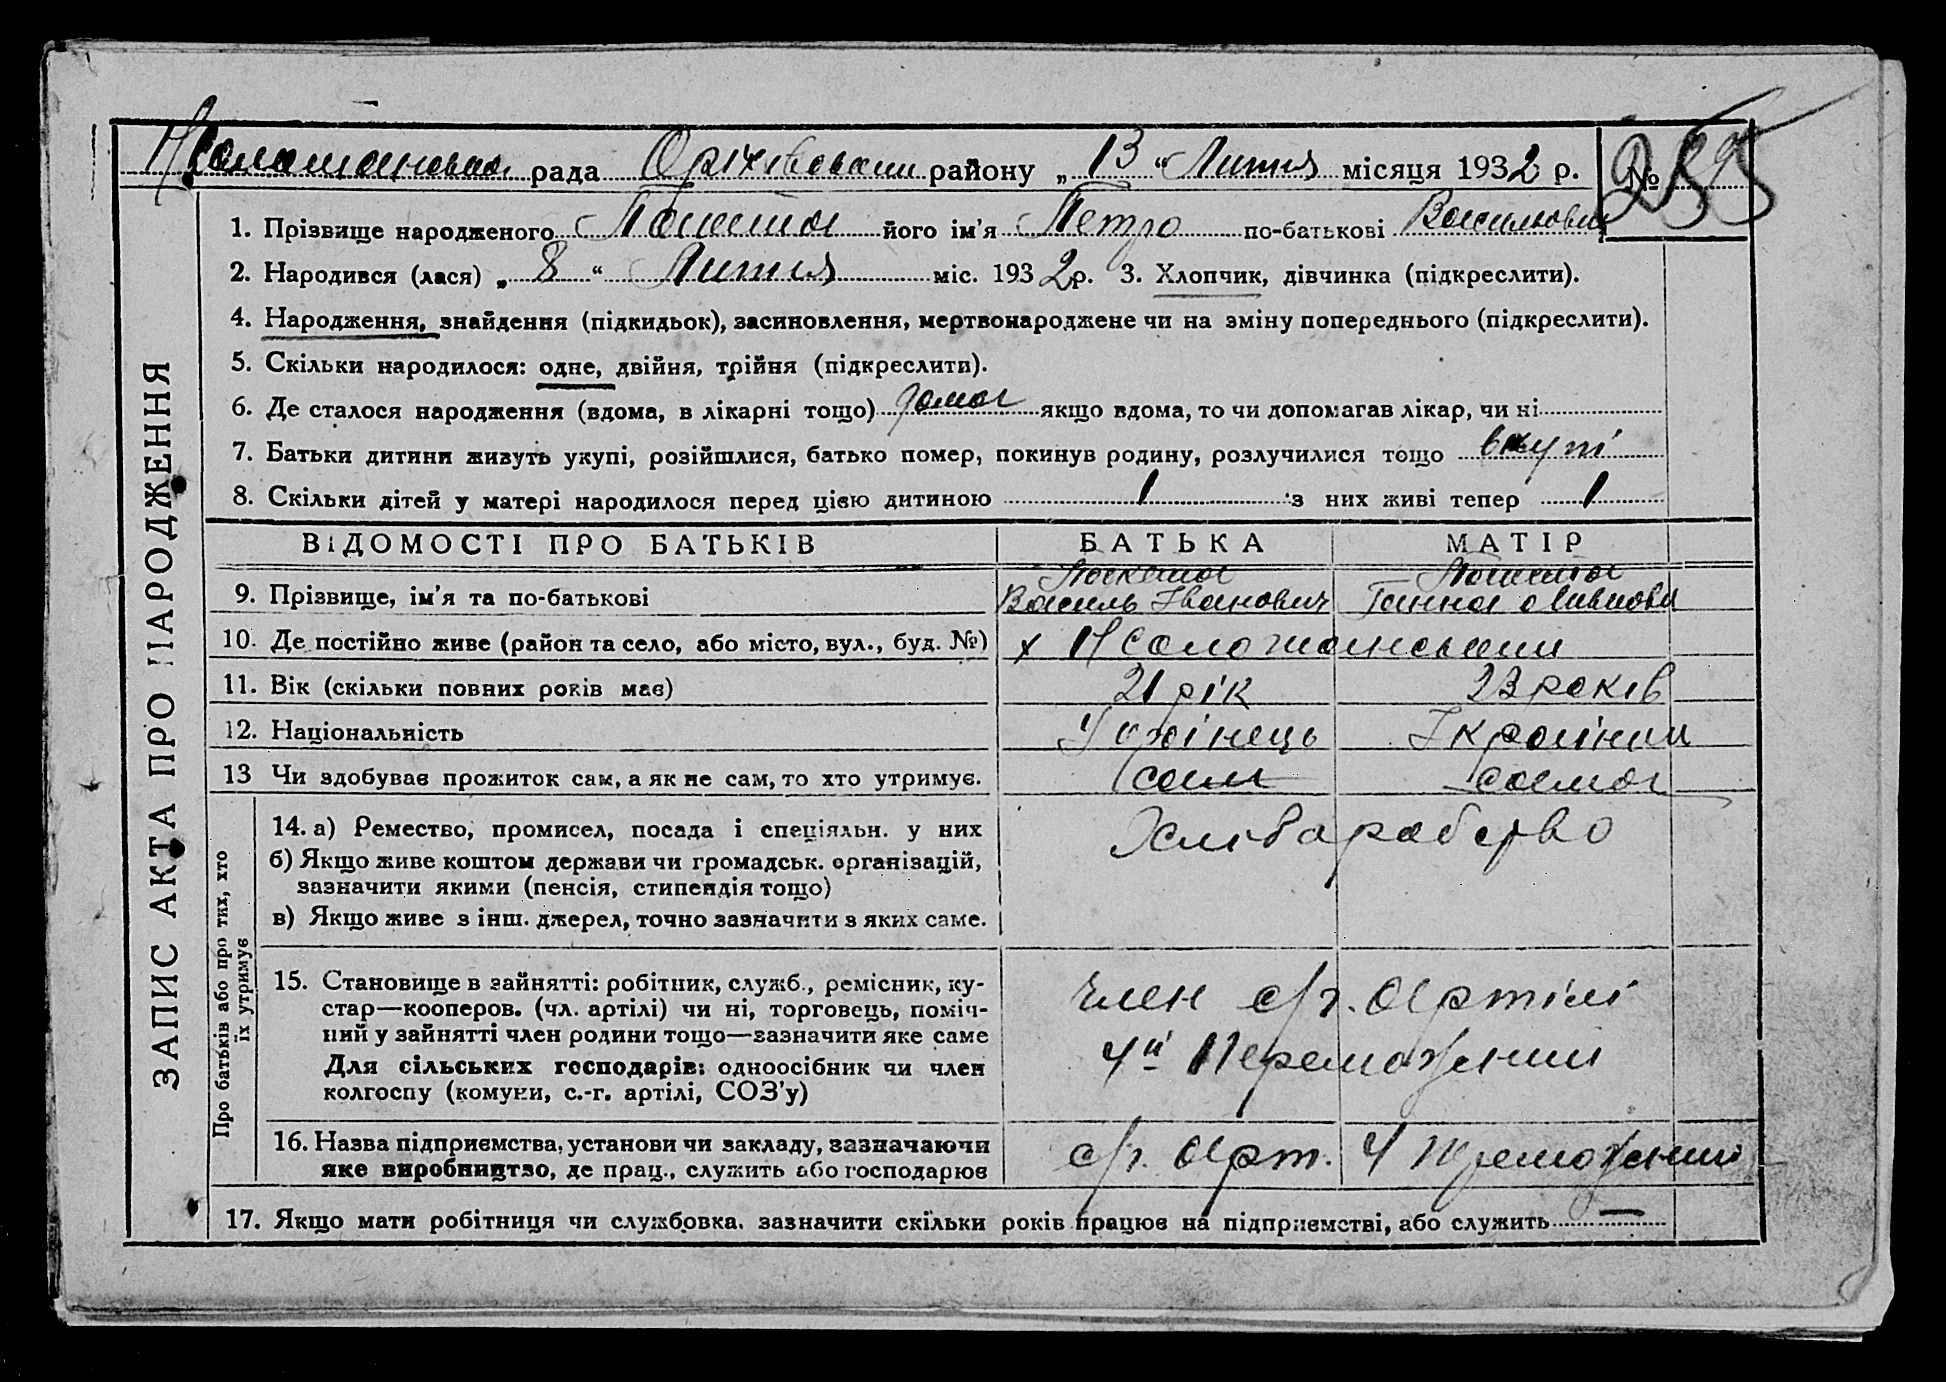 рада Оріхівський району „ 13 “ Лютня місяця 1932 р. № 255
1. Прізвище народженого його ім'я Петро по-батькові Васильович
2. Народився (лася) „ 8 “ Лютня міс. 1932р. 3. Хлопчик, дівчинка (підкреслити).
4. Народження, знайдення (підкидьок), засиновлення, мертвонароджене чи на зміну попереднього (підкреслити).
5. Скільки народилося: одне, двійня, трійня (підкреслити).
6. Де сталося народження (вдома, в лікарні тощо) дома якщо вдома, то чи допомагав лікар, чи ні
7. Батьки дитини живуть укупі, розійшлися, батько помер, покинув родину, розлучилися тощо вкупі
8. Скільки дітей у матері народилося перед цією дитиною 1 з них живі тепер 1
ЗАПИС АКТА ПРО НАРОДЖЕННЯ
ВІДОМОСТІ ПРО БАТЬКІВ БАТЬКА МАТІР
9. Прізвище, ім'я та по-батькові Василь Іванович Ганна
10. Де постійно живе (район та село, або місто, вул., буд. №) х
11. Вік (скільки повних років має) 21 рік 23 років
12. Національність Українець Українки
13 Чи здобуває прожиток сам, а як не сам, то хто утримує. сам сама
Про батьків або про тих, хто
їх утримує
14. а) Ремество, промисел, посада і спеціяльн. у них Хліборобство
б) Якщо живе коштом держави чи громадськ. організацій,
зазначити якими (пенсія, стипендія тощо)
в) Якщо живе з інш. джерел, точно зазначити з яких саме.
15. Становище в зайнятті: робітник, служб., ремісник, ку-
стар—кооперов. (чл. артілі) чи ні, торговець, поміч-
ний у зайнятті член родини тощо—зазначити яке саме
Для сільських господарів: одноосібник чи член
колгоспу (комуни, с.-г. артілі, СОЗ'у)
член с/г. Артілі
4й Переможний
16. Назва підприємства, установи чи закладу, зазначаючи
яке виробництво, де прац., служить або господарює
с/г. Арт. 4 Переможний
17. Якщо мати робітниця чи службовка, зазначити скільки років працює на підприємстві, або служить —